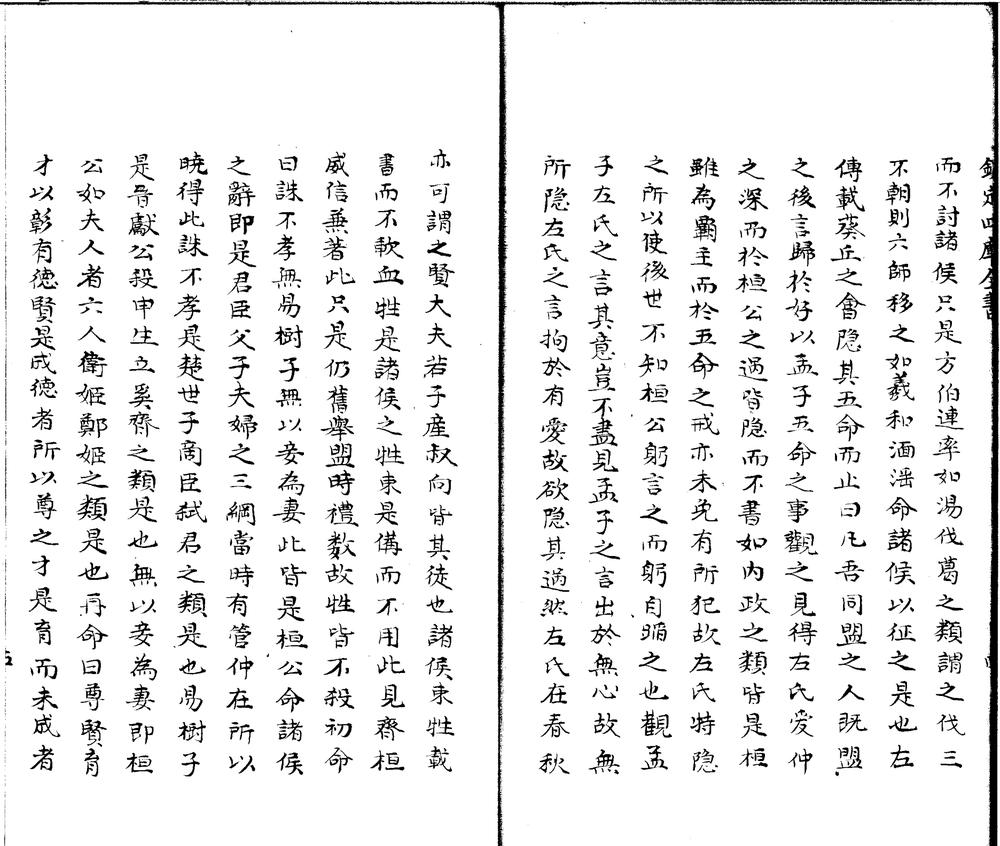 欽定四庫全書
而不討諸侯只是方伯連率如湯伐葛之類謂之伐三
不朝則六師移之如羲和湎淫命諸侯以征之是也左
傳載葵丘之會隠其五命而止曰凡吾同盟之人既盟
之後言歸於好以孟子五命之事觀之見得左氏愛仲
之深而於桓公之過皆隠而不書如内政之類皆是桓
雖為霸主而於五命之戒亦未免有所犯故左氏特隠
之所以使後世不知桓公躬言之而躬自蹈之也觀孟
子左氏之言其意豈不盡見孟子之言出於無心故無
所隠左氏之言拘於有愛故欲隠其過然左氏在春秋
亦可謂之賢大夫若子産叔向皆其徒也諸侯束牲載
書而不歃血牲是諸侯之牲束是備而不用此見齊桓
威信兼著此只是仍舊舉盟時禮數故牲皆不殺初命
曰誅不孝無易樹子無以妾為妻此皆是桓公命諸侯
之辭即是君臣父子夫婦之三綱當時有管仲在所以
曉得此誅不孝是楚世子商臣弑君之類是也易樹子
是晉獻公殺申生立奚齊之類是也無以妾為妻即桓
公如夫人者六人衛姬鄭姬之類是也再命曰尊賢育
才以彰有德賢是成德者所以尊之才是育而未成者